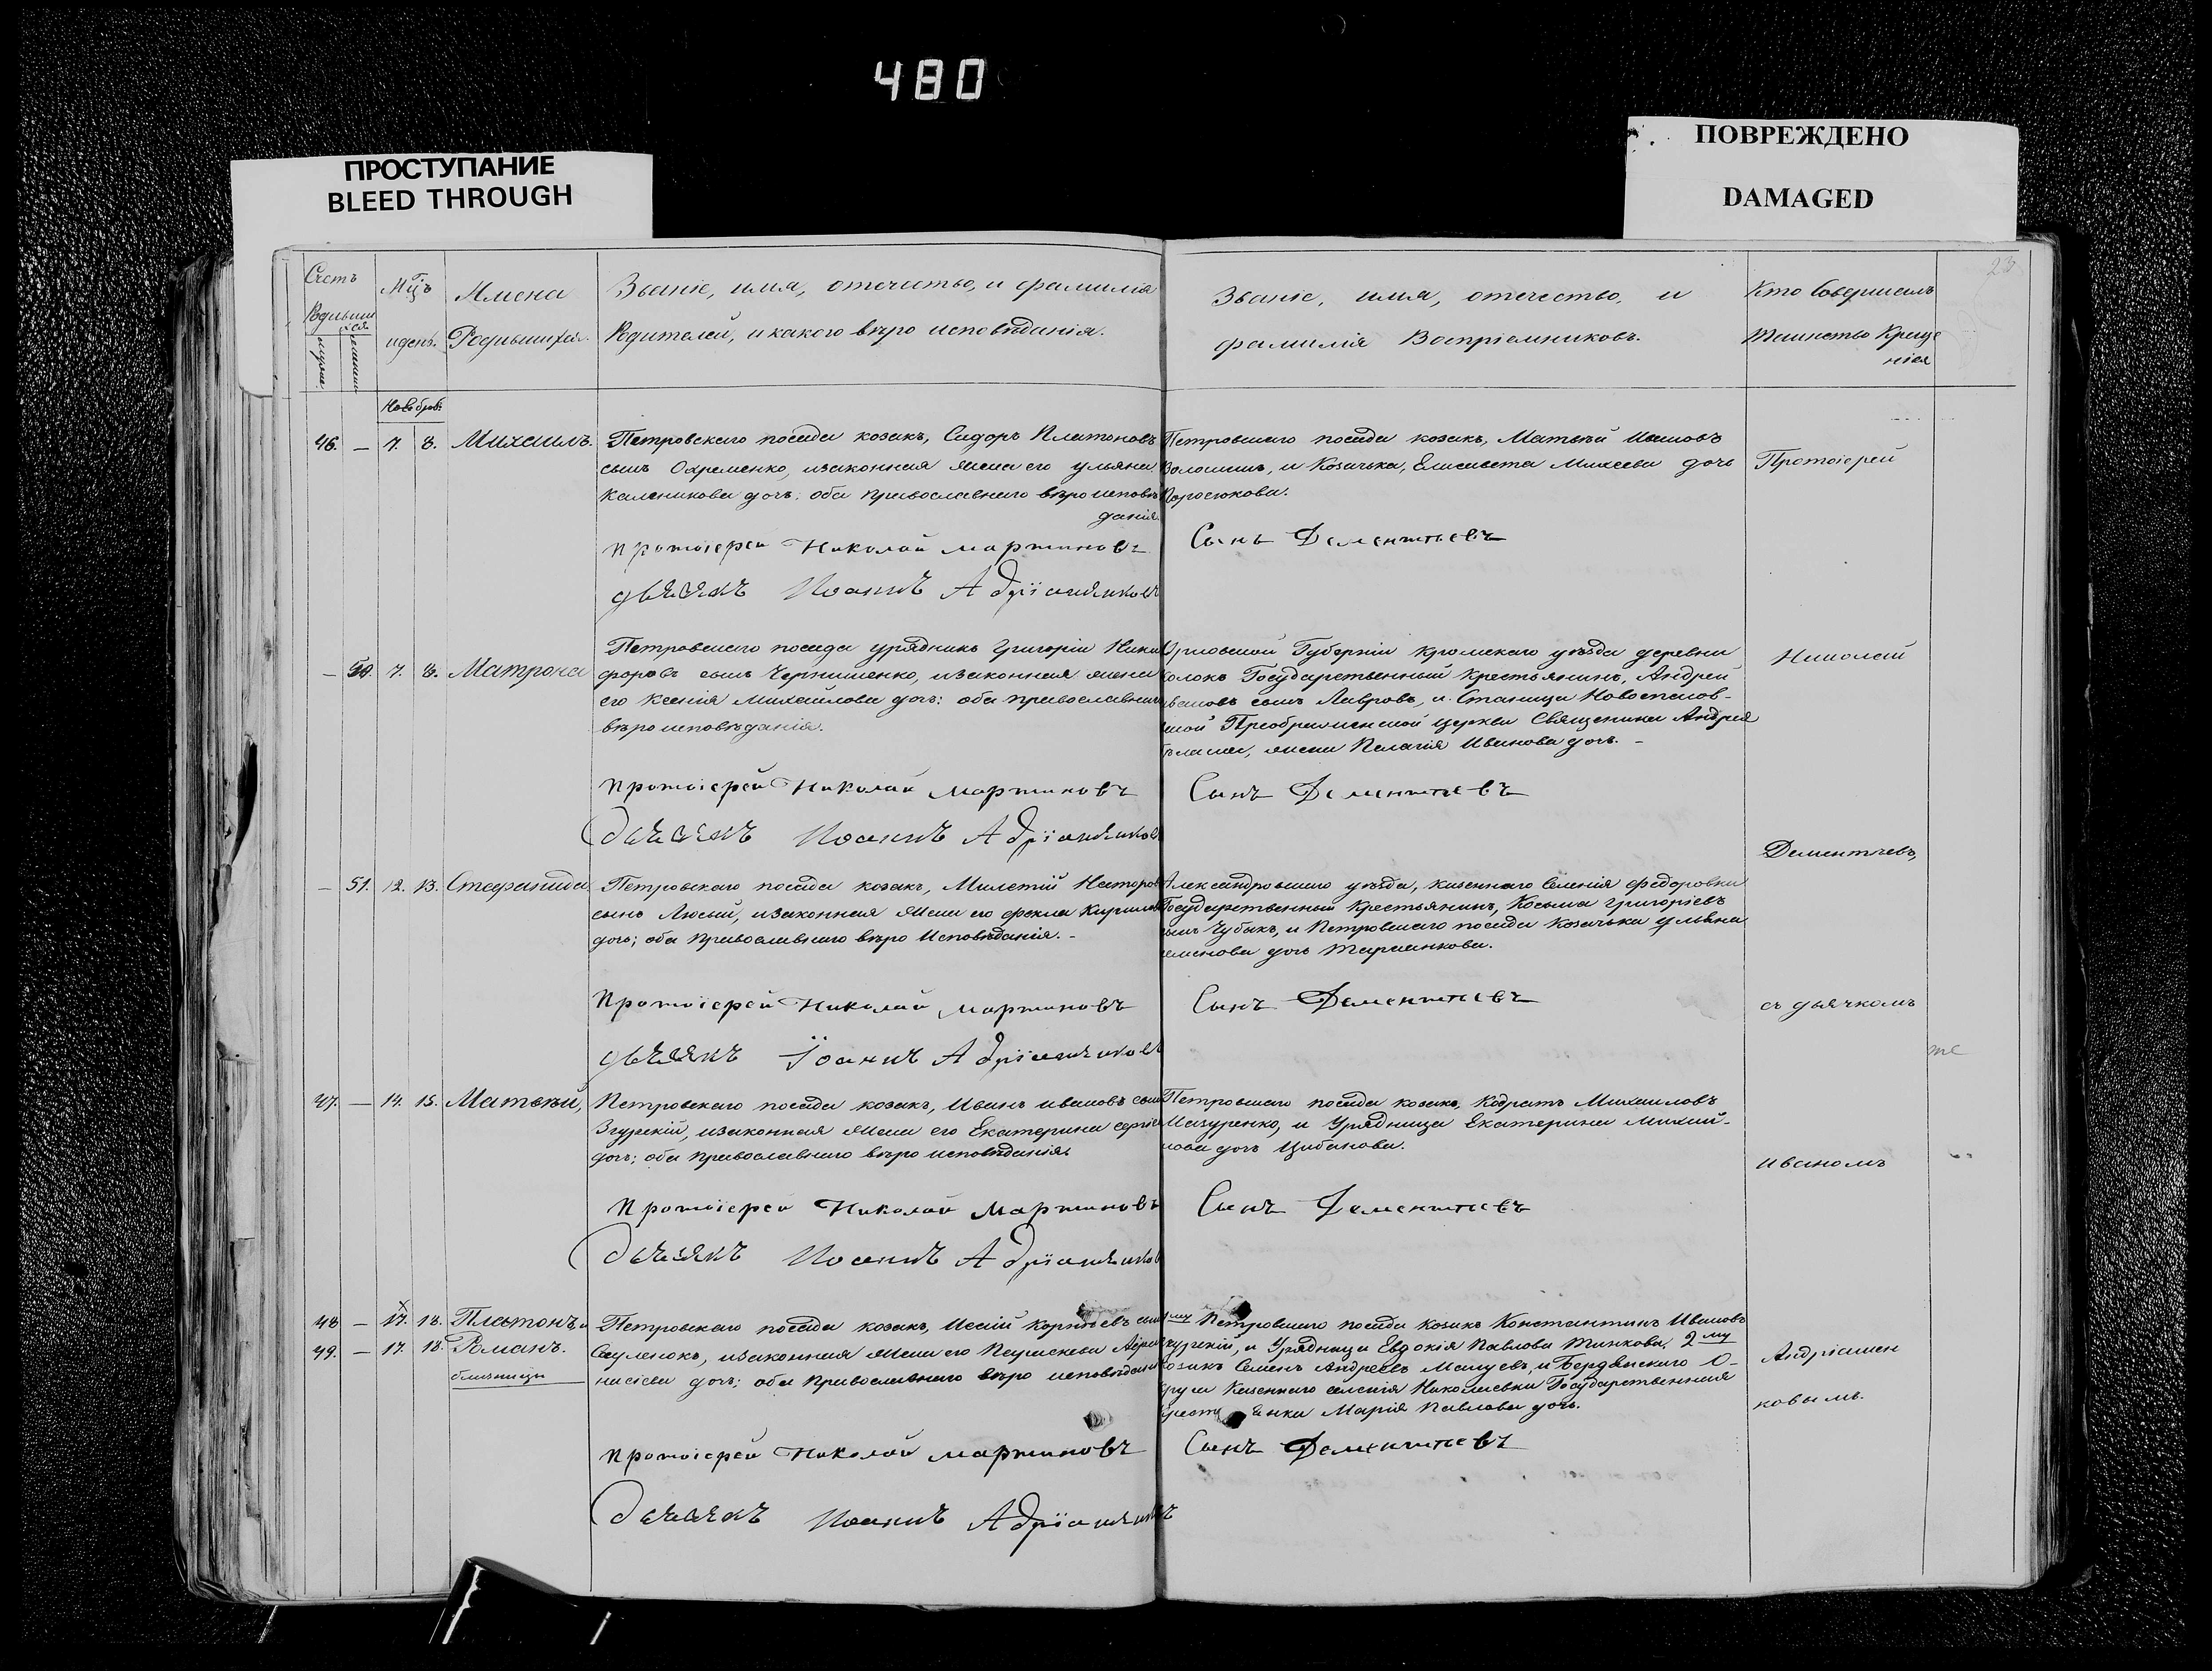 480
ПРОСТУПАНИЕ
BLEED THROUGH
ПОВРЕЖДЕНО
DAMAGED
23
Счетъ
Мцъ
Имена
Званіе, имя, отечество, и фамилія
и день.
Родившихся.
Родителей, и какого вѣро исповѣданія.
Званіе, имя, отечество, и
фамилія Воспріемниковъ.
Кто Совершалъ
Таинство Креще
нія
46. — 7. 8. Михаилъ.
Петровскаго посада козакъ, Сидоръ Платоновъ
сынъ Охременко, и законная жена его Ульяна
Каленикова дочь: оба православнаго вѣро исповѣ
данія.
Протоіерей Николай Мартиновъ
дьячокъ Иоаннъ Адріаненковъ
Петровскаго посада козакъ, Матвѣй Ивановъ
Волошинъ, и Козачька, Елисавета Михеева дочь
Поросюкова.
Сынъ Дементьевъ
Протоіерей
— 50. 7. 8. Матрона
Петровскаго посада урядникъ Григорій Ники
форовъ сынъ Чернишенко, и законная жена
его Ксенія Михайлова дочь: оба православнаго
вѣро исповѣданія.
Протоіерей Николай Мартиновъ
дьячокъ Иоаннъ Адріаненков
Орловской Губерніи Кромскаго уѣзда деревни
Государственный Крестьянинъ, Андрей
Ивановъ сынъ Лавровъ, и Станица Новоспасов-
ской Преображенской церкви Священника Андрея
жена Пелагія Иванова дочь. -
Сынъ Дементьевъ
Николай
Дементьевъ,
— 51. 12. 13. Стефанида
Петровскаго посада козакъ, Милетій
сынъ и законная жена его Фекла Кирилова
дочь; оба православнаго вѣро Исповѣданія. -
Протоіерей Николай Мартиновъ
дьячокъ Іоаннъ Адріаненковъ
Александровскаго уѣзда, казеннаго Селенія Федоровки
Государственный Крестьянинъ, Косьма Григоріевъ
сынъ Чубакъ, и Петровскаго посада Козачька Ульяна
Семенова дочь
Сынъ Дементьевъ
съ дьячкомъ
47. — 14. 15. Матвѣй,
Петровскаго посада козакъ, Иванъ Ивановъ сынъ
Згурскій, и законная жена его Екатерина Сергіева
дочь; оба православнаго вѣро исповѣданія.
Протоіерей Николай Мартиновъ
дьячокъ Иоаннъ Адріаненков
Петровскаго посада козакъ, Кодратъ Михаиловъ
Мазуренко, и Урядница Екатерина Михай-
лова дочь Цибанова.
Сынъ Дементьевъ
Иваномъ
48 — 17. 18. Платонъ и
49. — 17. 18. Романъ.
близници
Петровскаго посада козакъ, Исаій Корнѣевъ сынъ
и законная жена его Параскева
дочь; оба Православнаго вѣро исповѣданія
Протоіерей Николай Мартиновъ
дьячокъ Иоаннъ Адріаненковъ
1му Петровскаго посада козакъ Константинъ Ивановъ
Згурскій, и Урядница Евдокія Павлова 2му
козакъ Семенъ Андреевъ и Бердянскаго О-
круга Казеннаго селенія Николаевки Государственная
Марія Павлова дочь.
Сынъ Дементьевъ
Андріанен
ковымъ.